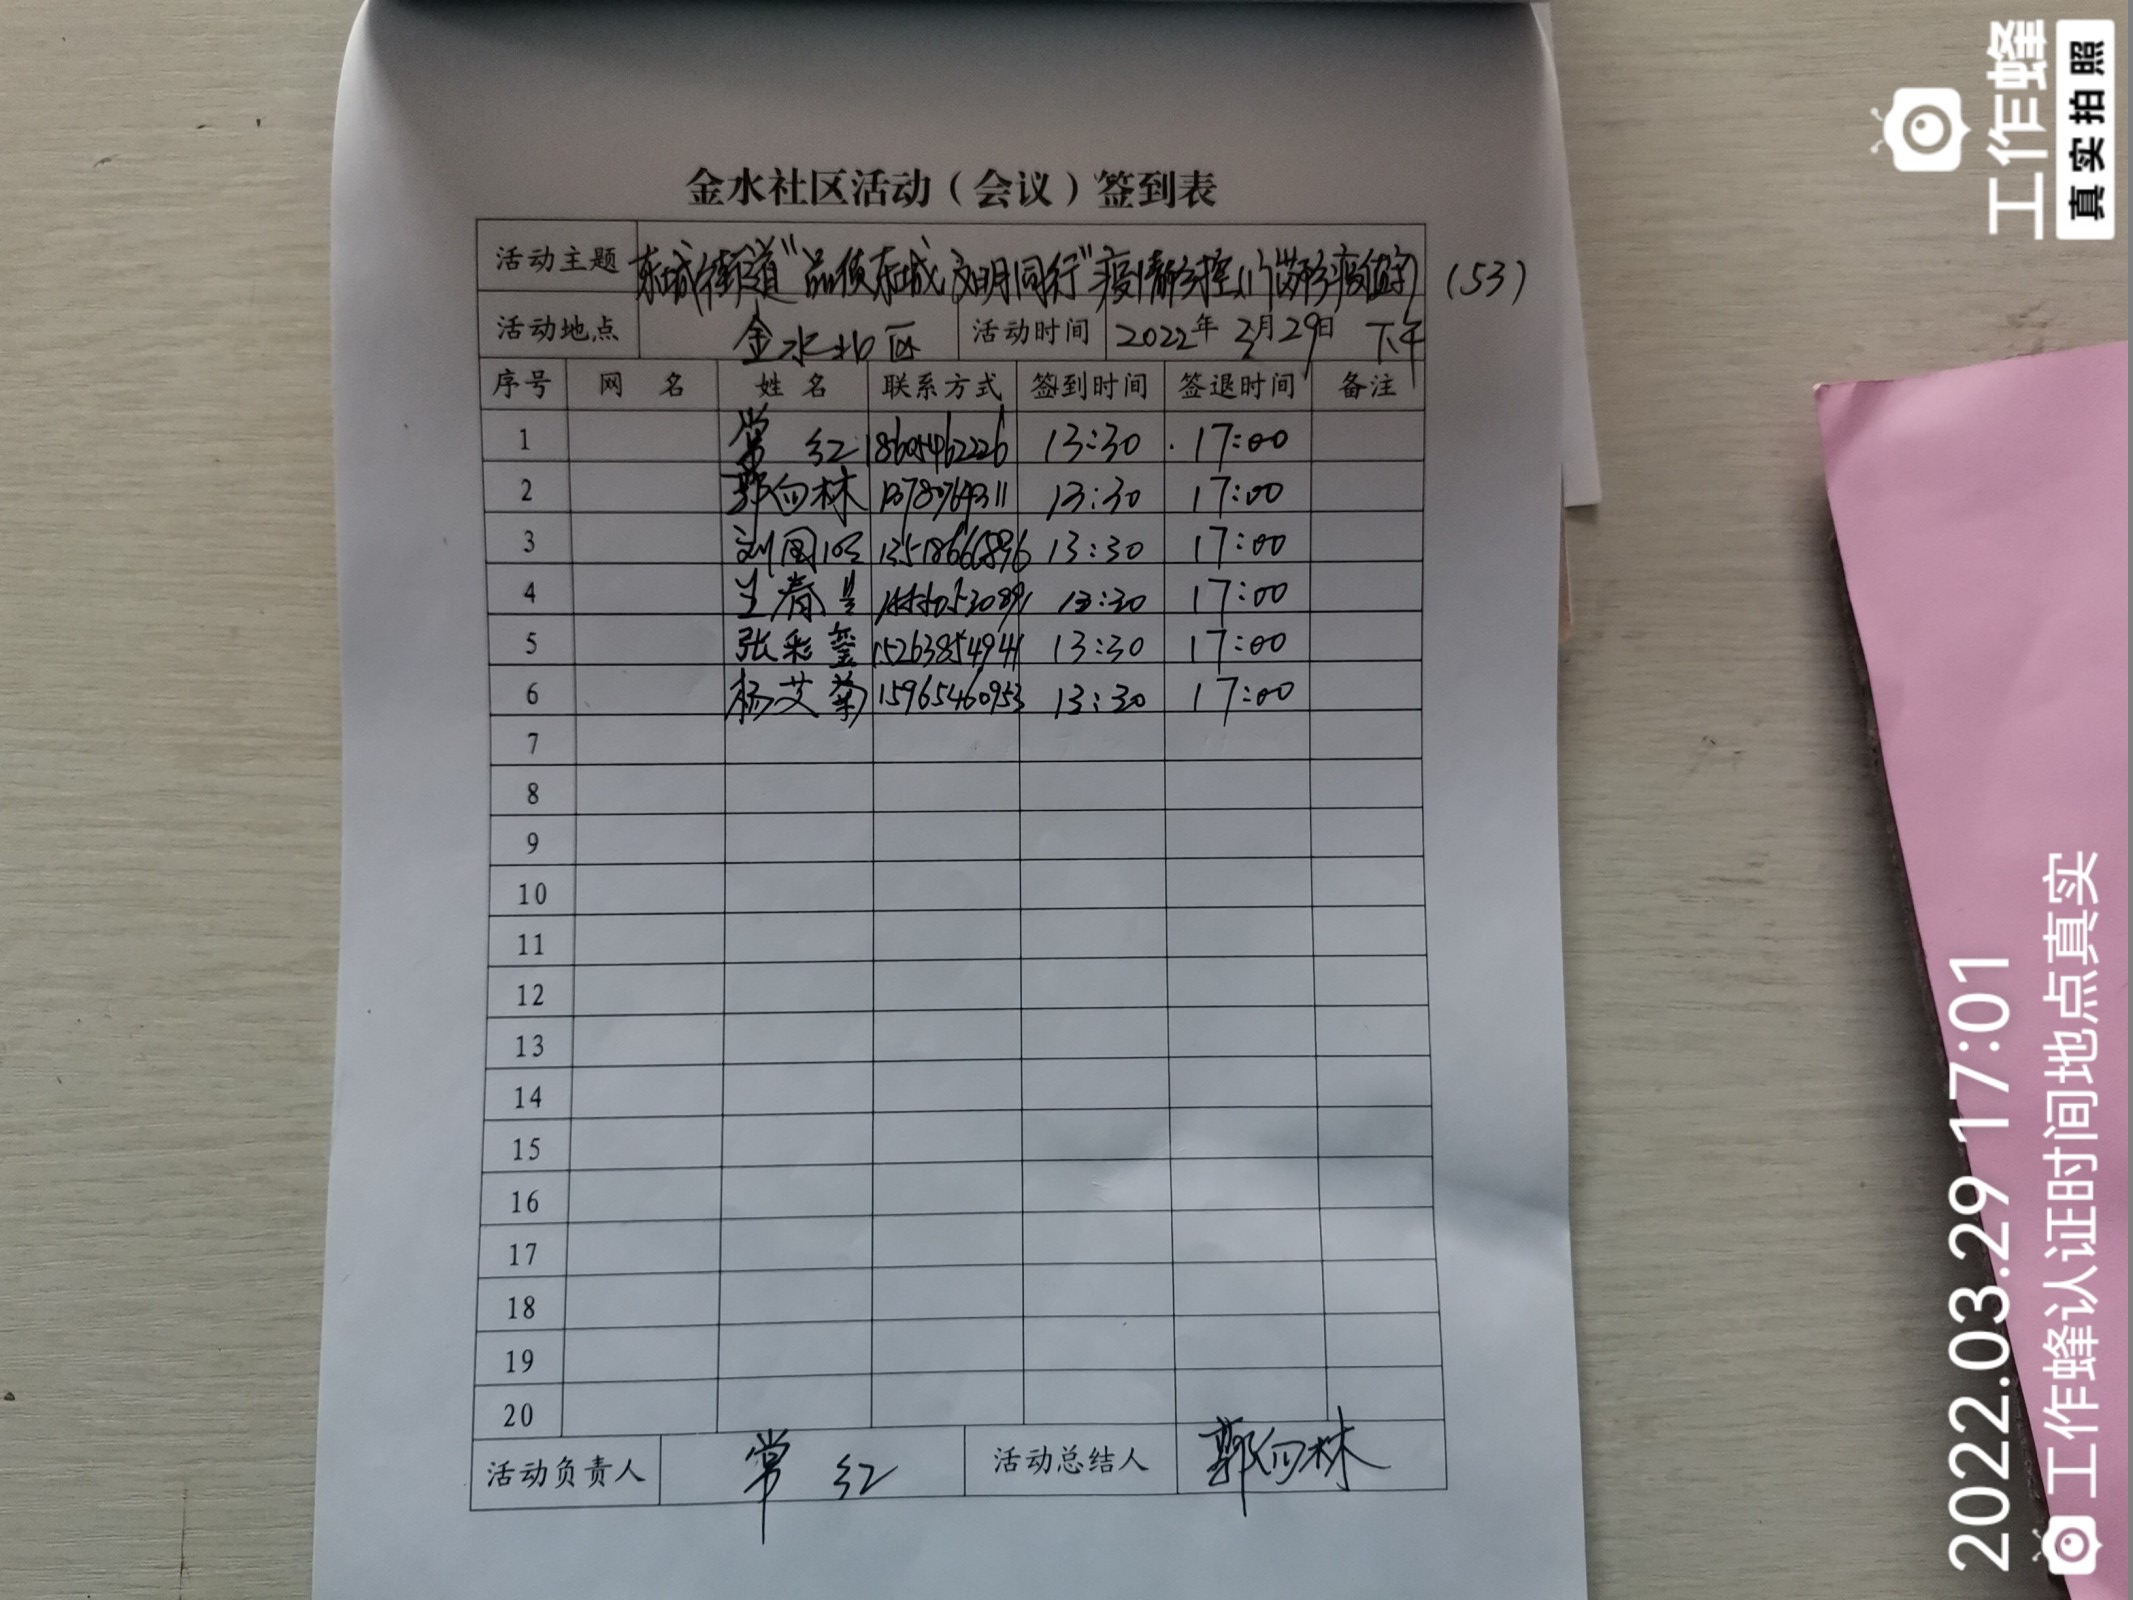 金水社区活动（会议）签到表
活动主题 东城街道"品质东城，文明同行"疫情防控 (53)
活动地点 金水社区 活动时间 2022年3月29日 下午
序号 网 名 姓 名 联系方式 签到时间 签退时间 备注
1 常 红 18605462226 13:30 17:00
2 郭向林 13:30 17:00
3 13:30 17:00
4 13:30 17:00
5 张彩 15263854941 13:30 17:00
6 杨艾菊 15965460953 13:30 17:00
7
8
9
10
11
12
13
14
15
16
17
18
19
20
活动负责人 常 红 活动总结人 郭向林
工作蜂
真实拍照
2022.03.29 17:01
工作蜂认证时间地点真实